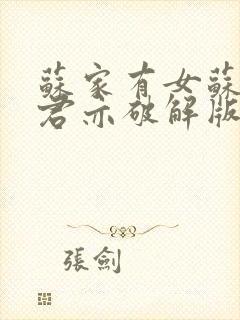 蘇家有女蘇
君亦破解版
張劍